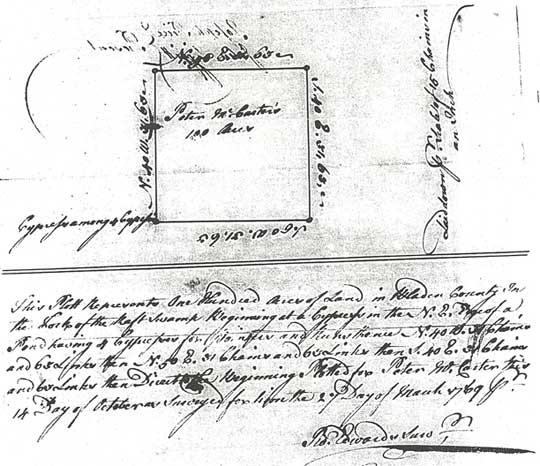 N. 50 E. 31.65
N. 40 W. 31.65
Peter McCarter's
100 Acres
S. 40 E. 31.65
S. 50 W. 31.65
Cypress among 4 Cypress
Laid down by a Scale of 15 Chains in
an Inch
This Platt Represents One Hundred Acres of Land in Bladen County In
the Fork of the Raft Swamp Beginning at a Cypress in the N. E. Edge of a
Pond having 4 Cypresses for and Runs thence N. 40 W. 31 Chains
and 65 Links then N. 50 E. 31 Chains and 65 Links then S. 40 E. 31 Chains
and 65 Links then Direct to Beginning Platted for Peter McCarter this
14 Day of October as Surveyed for him the 2d Day of March 1769
Edwards Surv